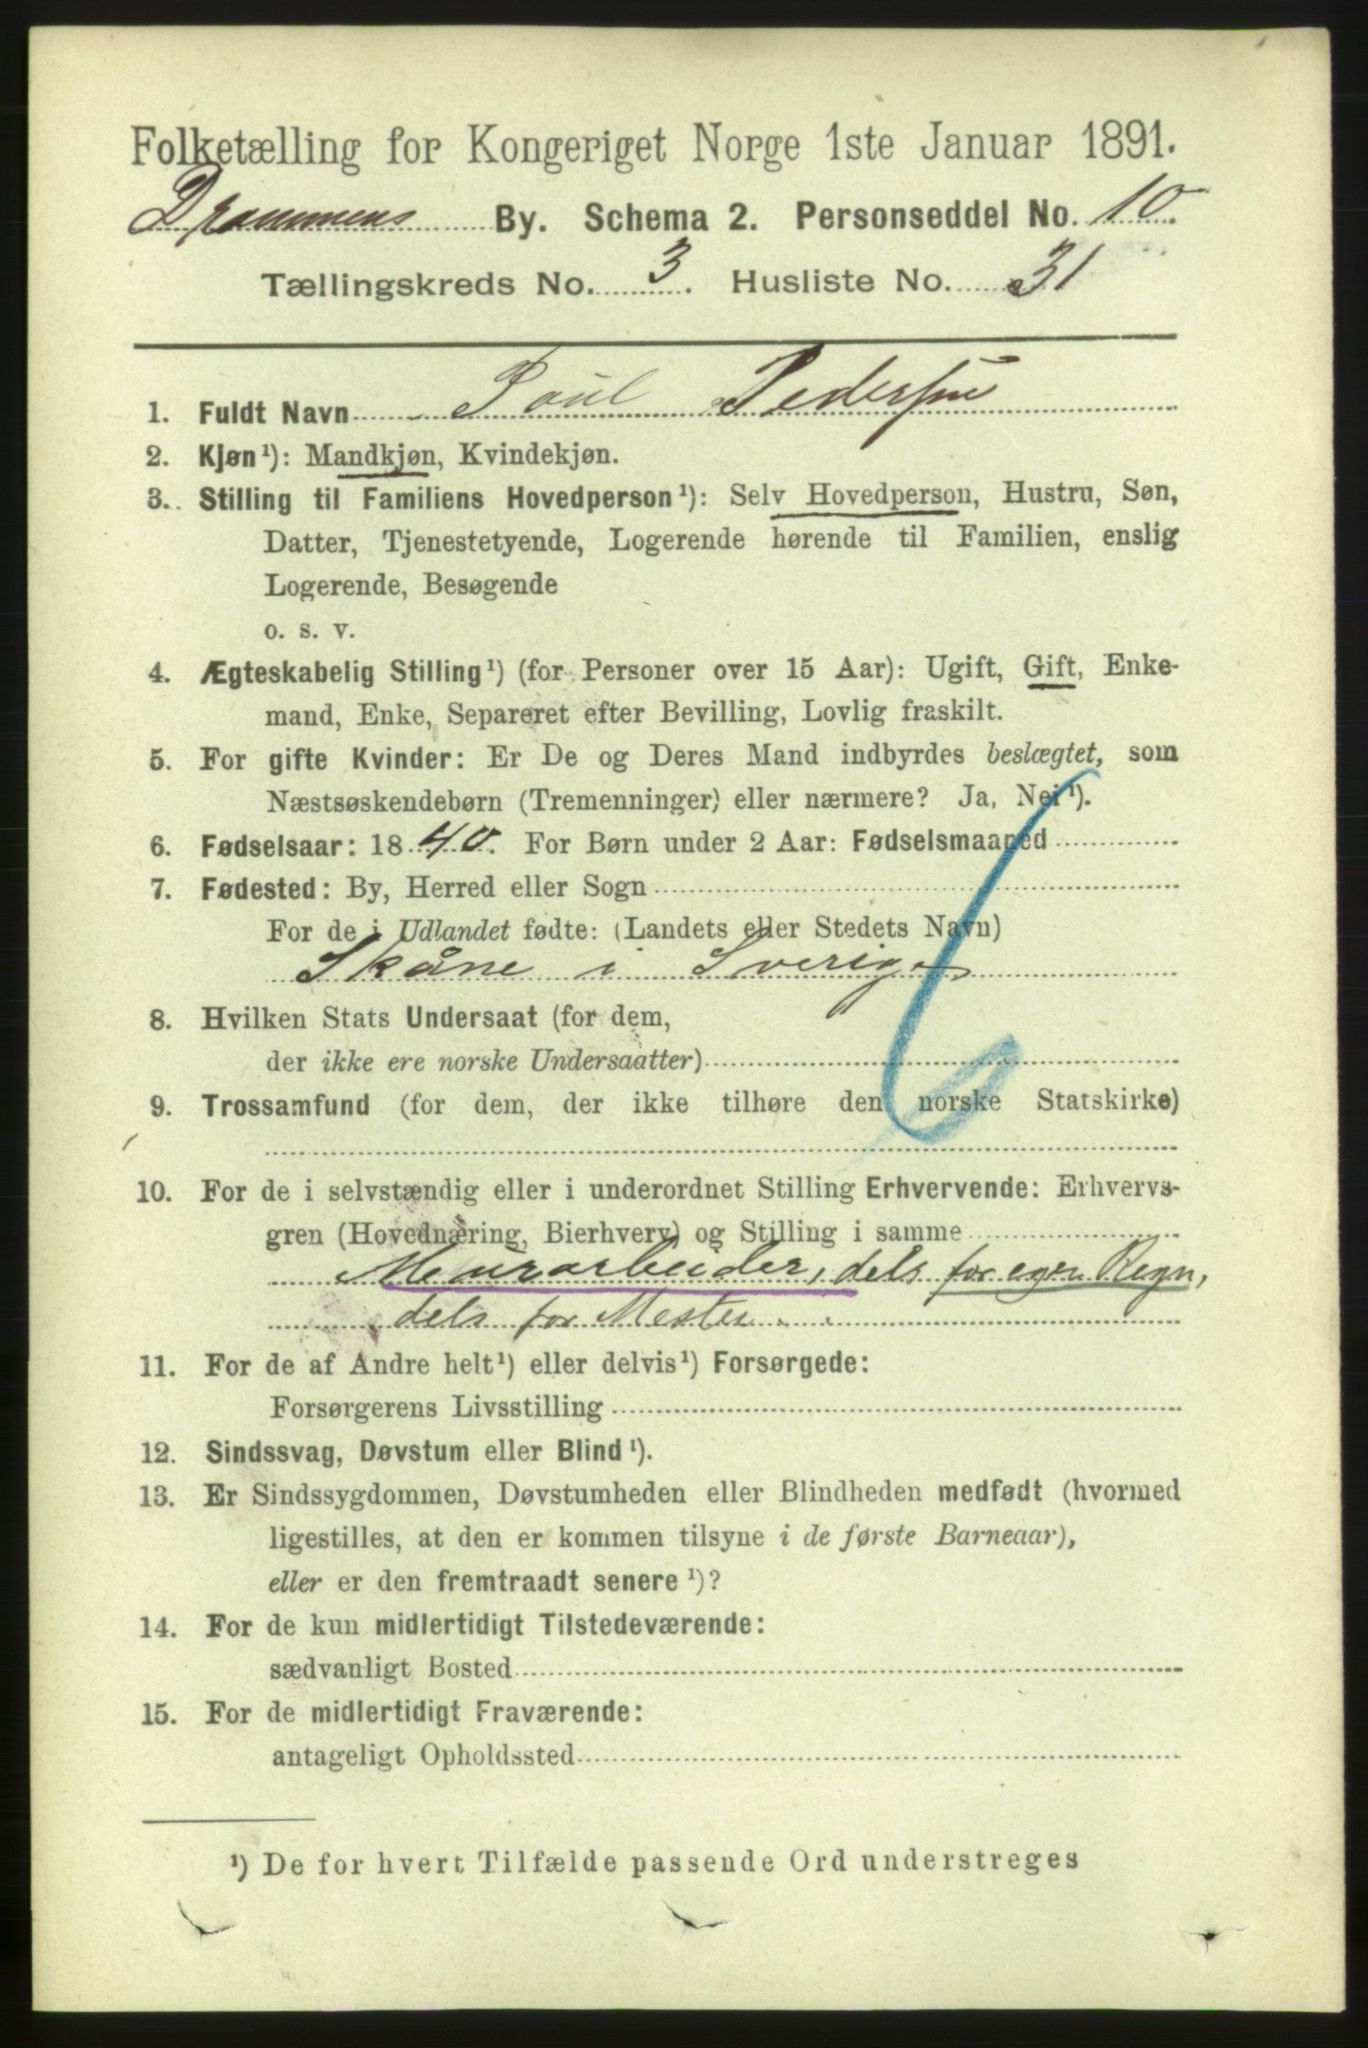 Folketælling for Kongeriget Norge 1ste Januar 1891.
Drammens By. Schema 2. Personseddel No. 10.
Tællingskreds No. 3. Husliste No. 31
1. Fuldt Navn Poul Pedersen
2. Kjøn¹): Mandkjøn, Kvindekjøn.
3. Stilling til Familiens Hovedperson¹): Selv Hovedperson, Hustru, Søn,
Datter, Tjenestetyende, Logerende hørende til Familien, enslig
Logerende, Besøgende
o. s. v.
4. Ægteskabelig Stilling¹) (for Personer over 15 Aar): Ugift, Gift, Enke-
mand, Enke, Separeret efter Bevilling, Lovlig fraskilt.
5. For gifte Kvinder: Er De og Deres Mand indbyrdes beslægtet, som
Næstsøskendebørn (Tremenninger) eller nærmere? Ja, Nei¹).
6. Fødselsaar: 1840. For Børn under 2 Aar: Fødselsmaaned
7. Fødested: By, Herred eller Sogn
For de i Udlandet fødte: (Landets eller Stedets Navn)
Skåne i Sverige
8. Hvilken Stats Undersaat (for dem,
der ikke ere norske Undersaatter)
9. Trossamfund (for dem, der ikke tilhøre den norske Statskirke)
10. For de i selvstændig eller i underordnet Stilling Erhvervende: Erhvervs-
gren (Hovednæring, Bierhverv) og Stilling i samme
Meurarbeider, dels for egen Regn,
dels for Mester
11. For de af Andre helt¹) eller delvis¹) Forsørgede:
Forsørgerens Livsstilling
12. Sindssvag, Døvstum eller Blind¹).
13. Er Sindssygdommen, Døvstumheden eller Blindheden medfødt (hvormed
ligestilles, at den er kommen tilsyne i de første Barneaar),
eller er den fremtraadt senere¹)?
14. For de kun midlertidigt Tilstedeværende:
sædvanligt Bosted
15. For de midlertidigt Fraværende:
antageligt Opholdssted
¹) De for hvert Tilfælde passende Ord understreges